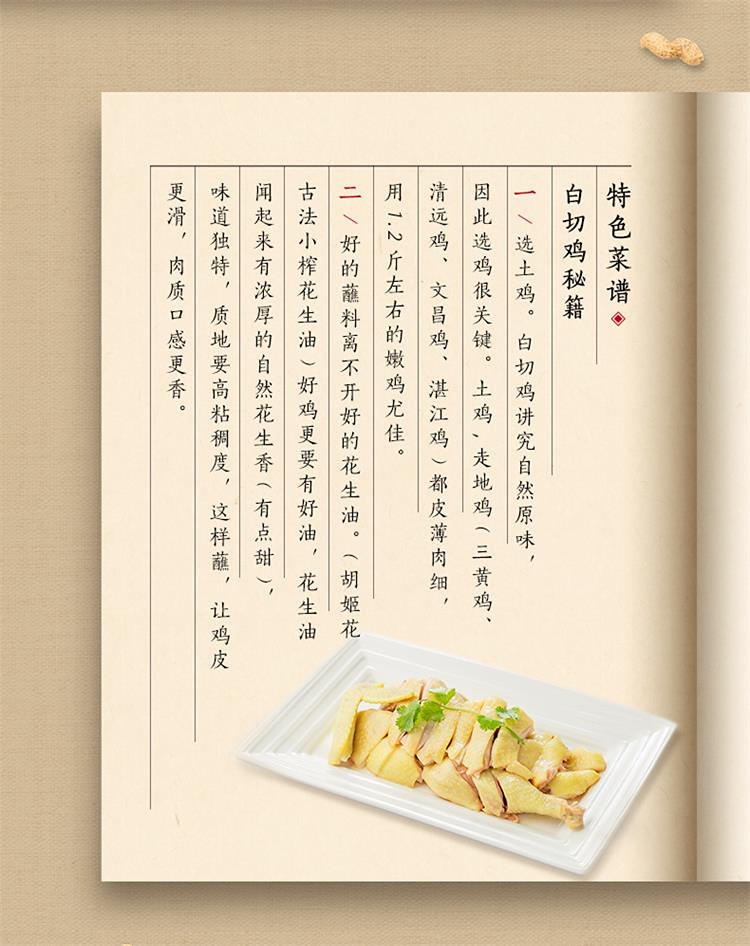 特色菜谱
白切鸡秘籍
一/选土鸡。白切鸡讲究自然原味，
因此选鸡很关键。土鸡、走地鸡（三黄鸡、
清远鸡、文昌鸡、湛江鸡）都皮薄肉细，
用1.2斤左右的嫩鸡尤佳。
二/好的蘸料离不开好的花生油。（胡姬花
古法小榨花生油）好鸡更要有好油，花生油
闻起来有浓厚的自然花生香（有点甜），
味道独特，质地要高粘稠度，这样蘸，让鸡皮
更滑，肉质口感更香。